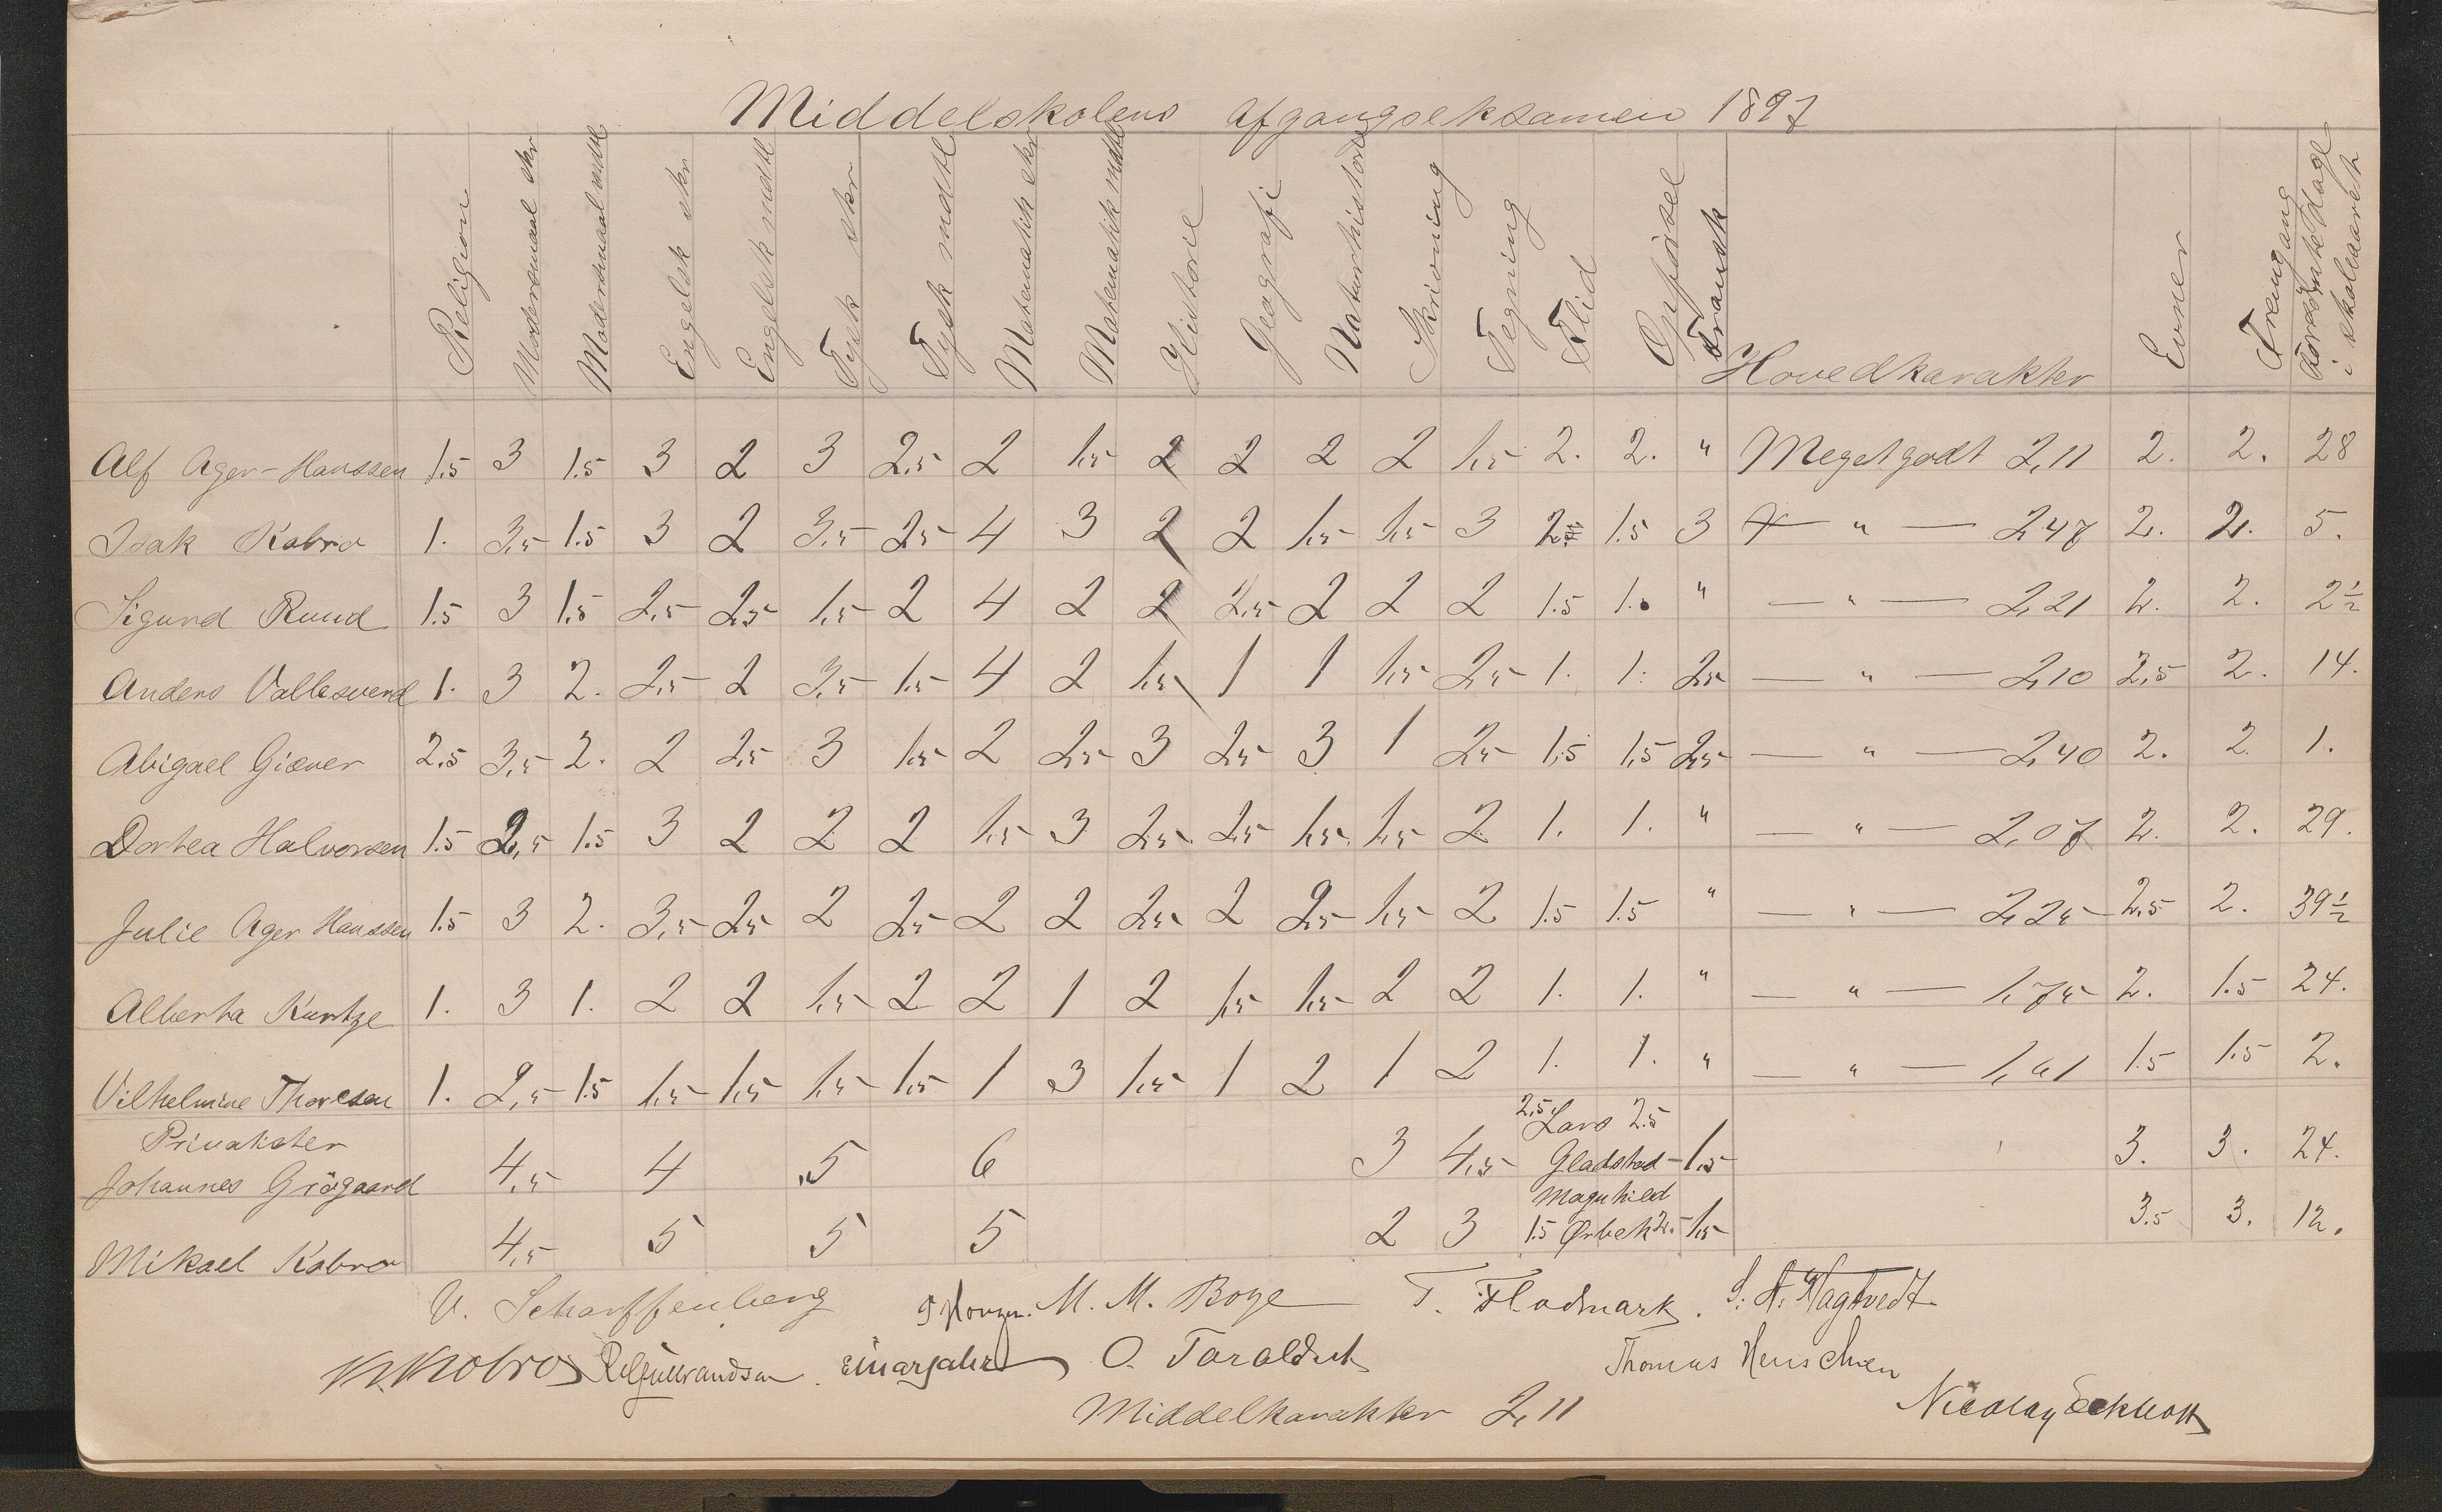 Middelskolens Afgangseksamen 1897
Religion Modersmaal skr Modersmaal mdtl Engelsk skr Engelsk mdtl Tysk skr Tysk mdtl Matematik skr Matematik mdtl Historie Geografi Naturhistorie Skrivning Tegning Flid Opførsel Fransk Hovedkarakter Evner Fremgang Forsømte Dage i skoleaaret
Alf Ager-Hanssen 1.5 3 1.5 3 2 3 2,5 2 1,5 2 2 2 2 1,5 2. 2. " Meget godt 2,11 2. 2. 28
Isak Kobro 1. 3,5 1.5 3 2 3,5 2,5 4 3 2 2 1,5 1,5 3 2. 1.5 3 — " — 2,47 2. 2. 5.
Sigurd Ruud 1.5 3 1.5 2,5 2,5 1,5 2 4 2 2 2,5 2 2 2 1.5 1. " — " — 2,21 2. 2. 2½
Anders Vallesverd 1. 3 2. 2,5 2 3,5 1,5 4 2 1,5 1 1 1,5 2,5 1. 1. 2,5 — " — 2,10 2,5 2. 14.
Abigael Giæver 2.5 3,5 2. 2 2,5 3 1,5 2 2,5 3 2,5 3 1 2,5 1,5 1,5 2,5 — " — 2,40 2. 2 1.
Dortea Halvorsen 1.5 2,5 1.5 3 2 2 2 1,5 3 2,5 2,5 1,5 1,5 2 1. 1. " — " — 2,07 2. 2. 29.
Julie Ager Hanssen 1.5 3 2. 3,5 2,5 2 2,5 2 2 2,5 2 2,5 1,5 2 1.5 1.5 " — " — 2,25 2,5 2. 39½
Alberta Kuntze 1. 3 1. 2 2 1,5 2 2 1 2 1,5 1,5 2 2 1. 1. " — " — 1,75 2. 1.5 24.
Vilhelmine Thoresen 1. 2,5 1.5 1,5 1,5 1,5 1,5 1 3 1,5 1 2 1 2 1. 1. " — " — 1,61 1.5 1.5 2.
Privatister
2,5 Lars 2.5
Johannes Grögaard 4,5 4 5 6 3 4,5 Gladstad 1,5 3. 3. 24.
Magnhild
Mikael Kobro 4,5 5 5 5 2 3 1.5 Ørbek 2. 1,5 3.5 3. 12.
V. Scharffenberg M. M. Boye T. Flodmark. S. A. Hagtvedt
K. Kobro Einar Jahr O. Taraldset Thomas Henschien
Middelkarakter 2,11 Nicolay Eckhoff